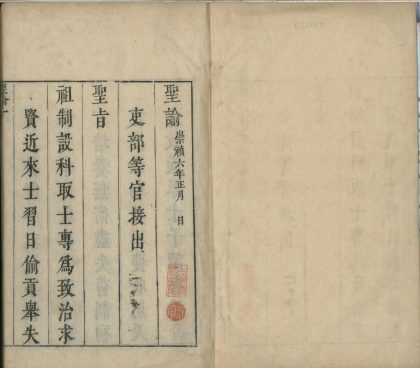 聖諭 崇禎六年正月 日
吏部等官接出
聖旨
祖制設科取士專為致治求
賢近來士習日偷貢舉失